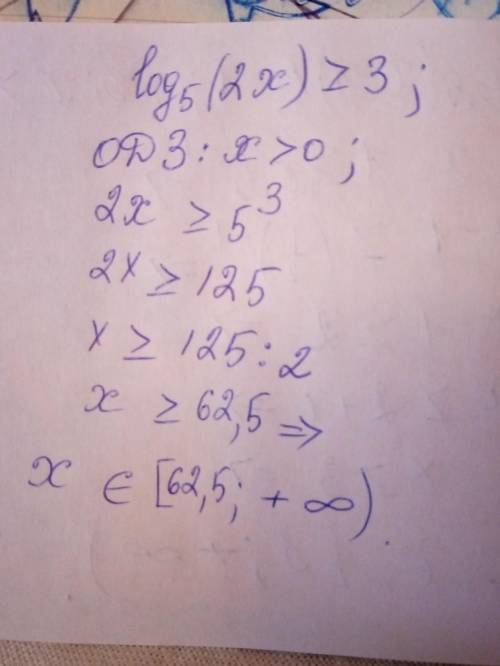 log₅(2x) ≥ 3 ;
ОДЗ : x > 0 ;
2x ≥ 5³
2x ≥ 125
x ≥ 125 : 2
x ≥ 62,5 ⇒
x ∈ [62,5; + ∞) .